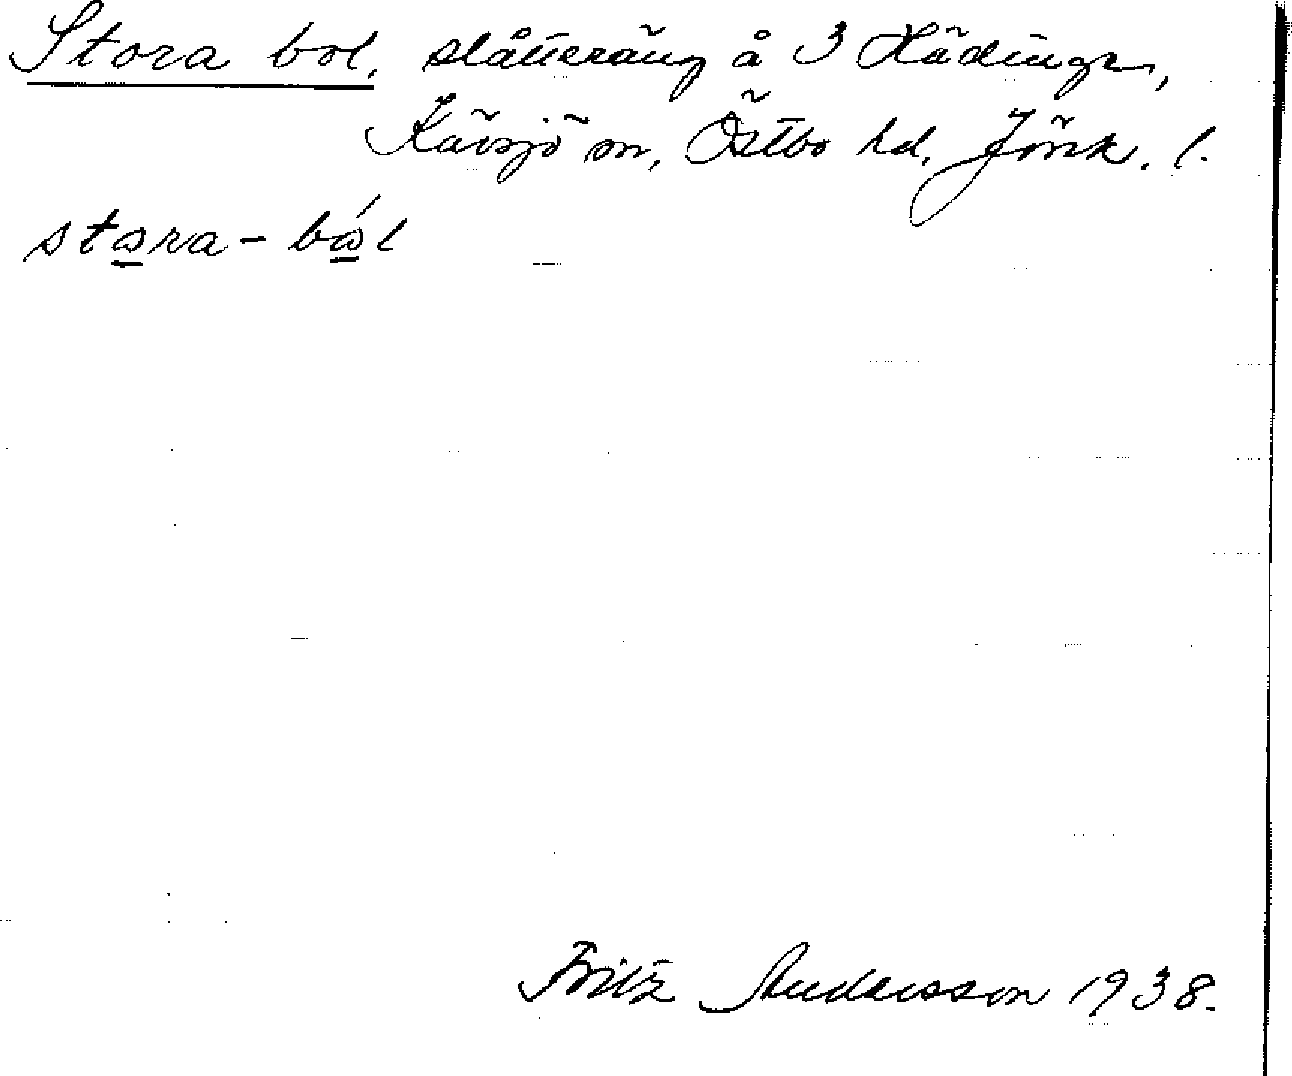 Stora bol, slåtteräng å 3 Hädinge,
Kävsjö sn, Östbo hd, Jönk. l.
stora-ból
Fritz Andersson 1938.